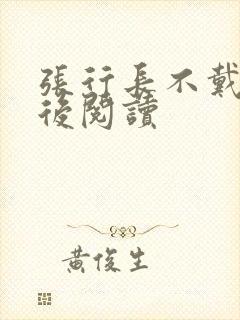 張行長不戴
後閱讀
黃俊生